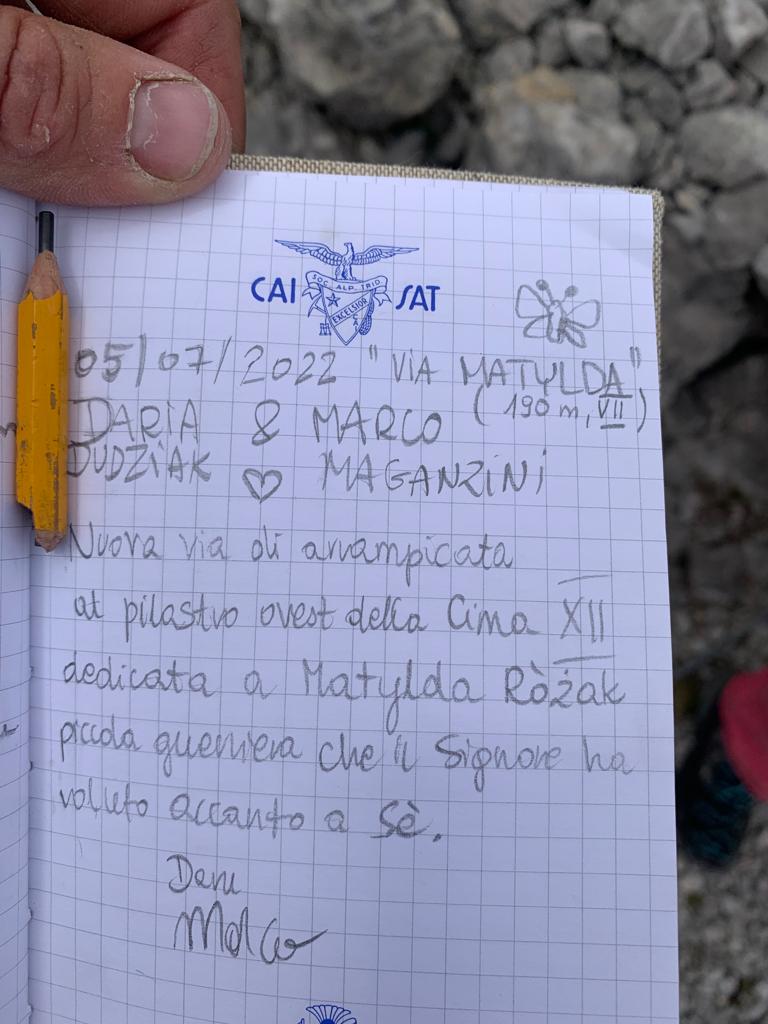 CAI SAT
SOC. ALP. TRID.
EXCELSIOR
05/07/2022 "VIA MATYLDA"
(190 m, VII)
DARIA & MARCO
DUDZIAK ♡ MAGANZINI
Nuova via di arrampicata
al pilastro ovest della Cima XII
dedicata a Matylda Ròżak
piccola guerriera che il Signore ha
voluto accanto a Sè.